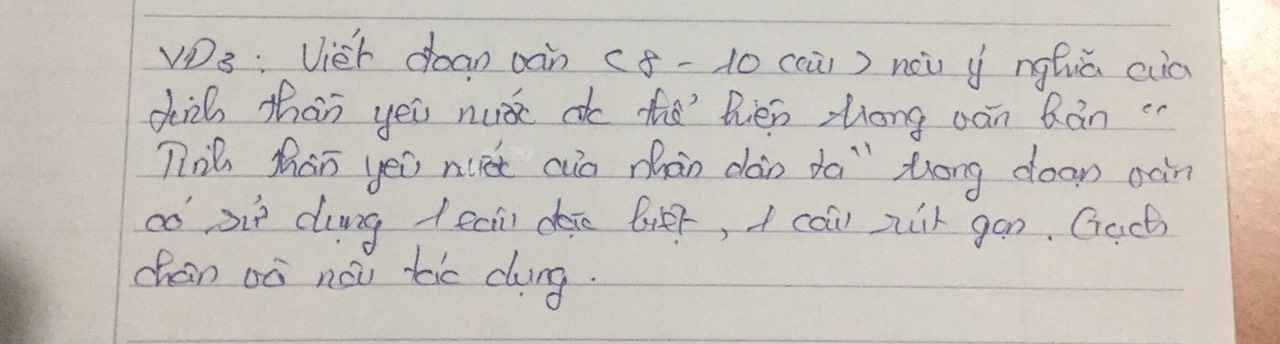 VD3: Viết đoạn văn (8 - 10 câu) nêu ý nghĩa của
tinh thần yêu nước đc thể hiện trong văn bản "
Tinh thần yêu nước của nhân dân ta" trong đoạn văn
có sử dụng 1 câu đặc biệt, 1 câu rút gọn. Gạch
chân và nêu tác dụng.